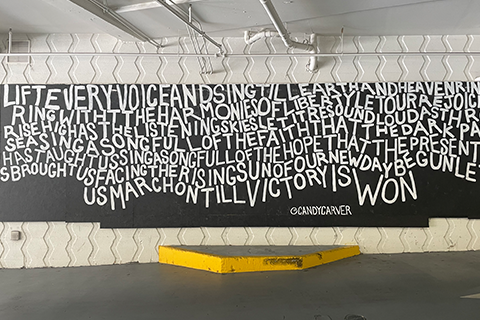 LIFT EVERY VOICE AND SING TILL EARTH AND HEAVEN RING
RING WITH THE HARMONIES OF LIBERTY LET OUR REJOICE
RISE HIGH AS THE LISTENING SKIES LET IT RESOUND LOUD AS THE R
SEA SING A SONG FULL OF THE FAITH THAT THE DARK PA
HAS TAUGHT US SING A SONG FULL OF THE HOPE THAT THE PRESENT
S BROUGHT US FACING THE RISING SUN OF OUR NEW DAY BEGUN LET
US MARCH ON TILL VICTORY IS WON
@CANDYCARVER